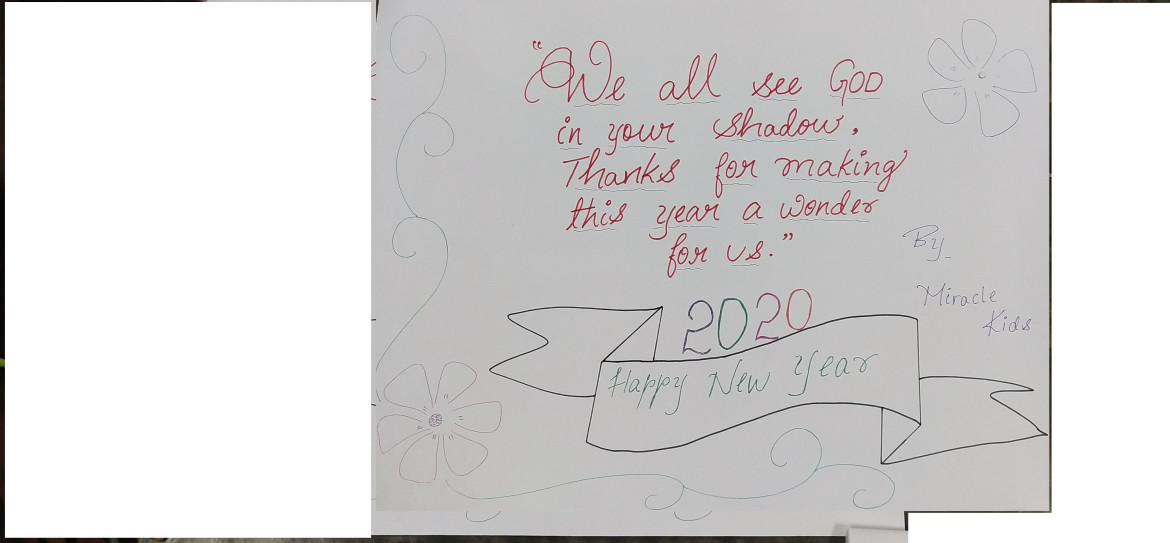 “We all see GOD
in your shadow.
Thanks for making
this year a wonder
for us.”
By
Miracle
Kids
2020
Happy New Year